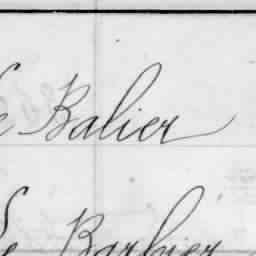 e Balier
Le Barbier